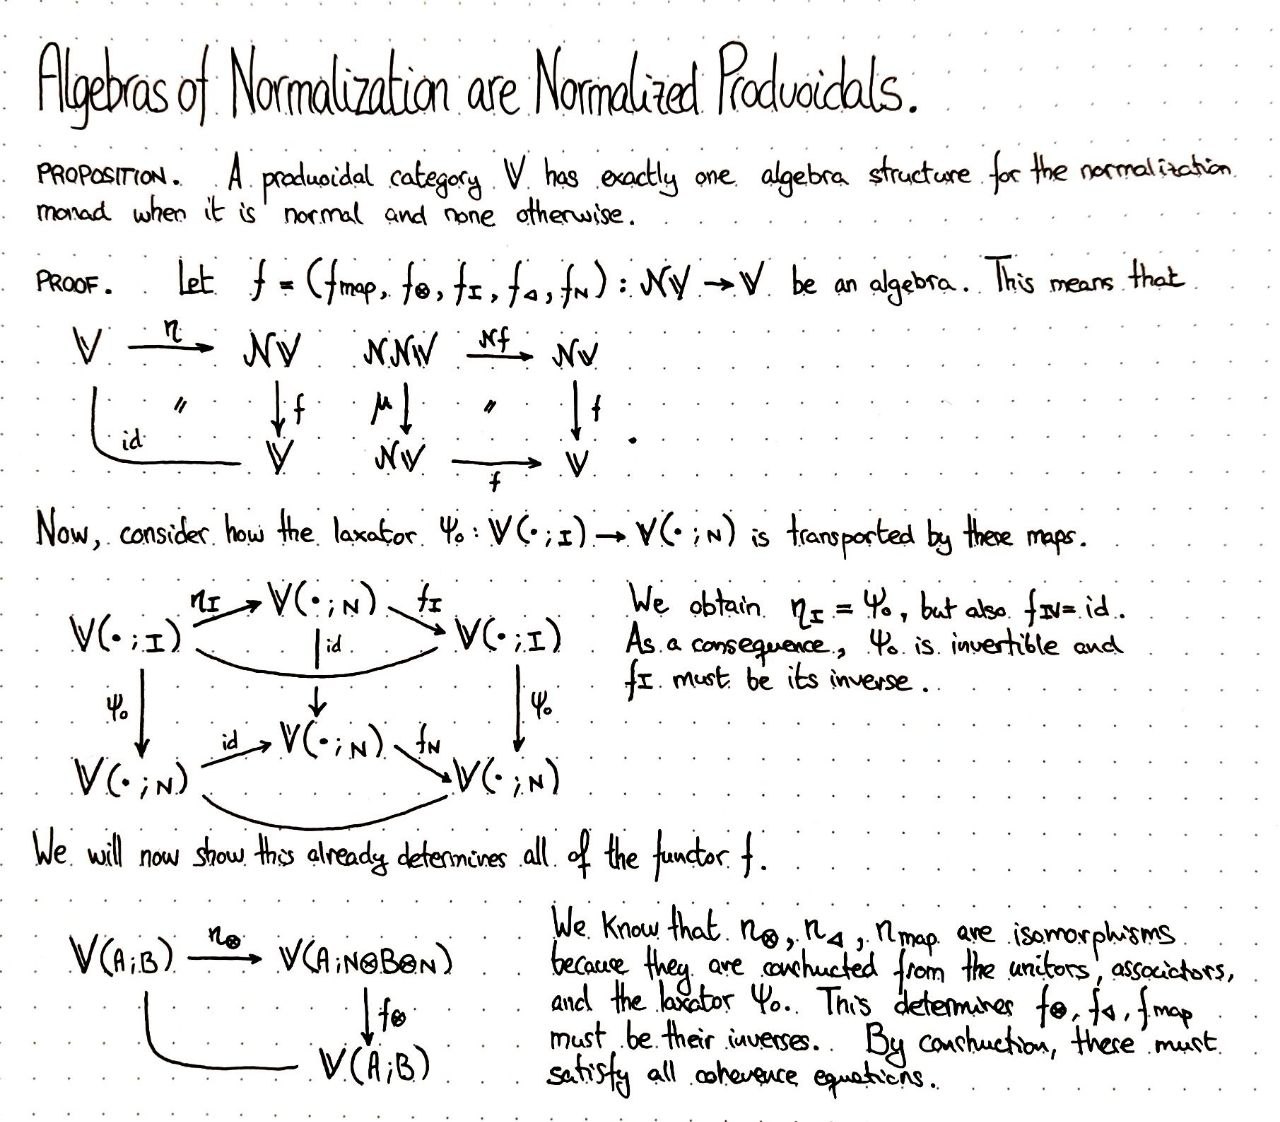 Algebras of Normalization are Normalized Produoidals.
PROPOSITION. A produoidal category 𝕍 has exactly one algebra structure for the normalization
monad when it is normal and none otherwise.
PROOF. Let f = (fmap, f⊗, fI, f◁, fN) : 𝒩𝕍 → 𝕍 be an algebra. This means that
𝕍 η 𝒩𝕍 𝒩𝒩𝕍 𝒩f 𝒩𝕍
〃 f μ 〃 f
id 𝕍 𝒩𝕍 f 𝕍 .
Now, consider how the laxator ψ₀ : 𝕍(•;I) → 𝕍(•;N) is transported by these maps.
ηI 𝕍(•;N) fI
𝕍(•;I) id 𝕍(•;I)
ψ₀ ψ₀
id 𝕍(•;N) fN
𝕍(•;N) 𝕍(•;N)
We obtain ηI = ψ₀, but also fN = id.
As a consequence, ψ₀ is invertible and
fI must be its inverse.
We will now show this already determines all of the functor f.
𝕍(A;B) η⊗ 𝕍(A;N⊗B⊗N)
f⊗
𝕍(A;B)
We know that η⊗, η◁, ηmap are isomorphisms
because they are constructed from the unitors, associators,
and the laxator ψ₀. This determines f⊗, f◁, fmap
must be their inverses. By construction, these must
satisfy all coherence equations.